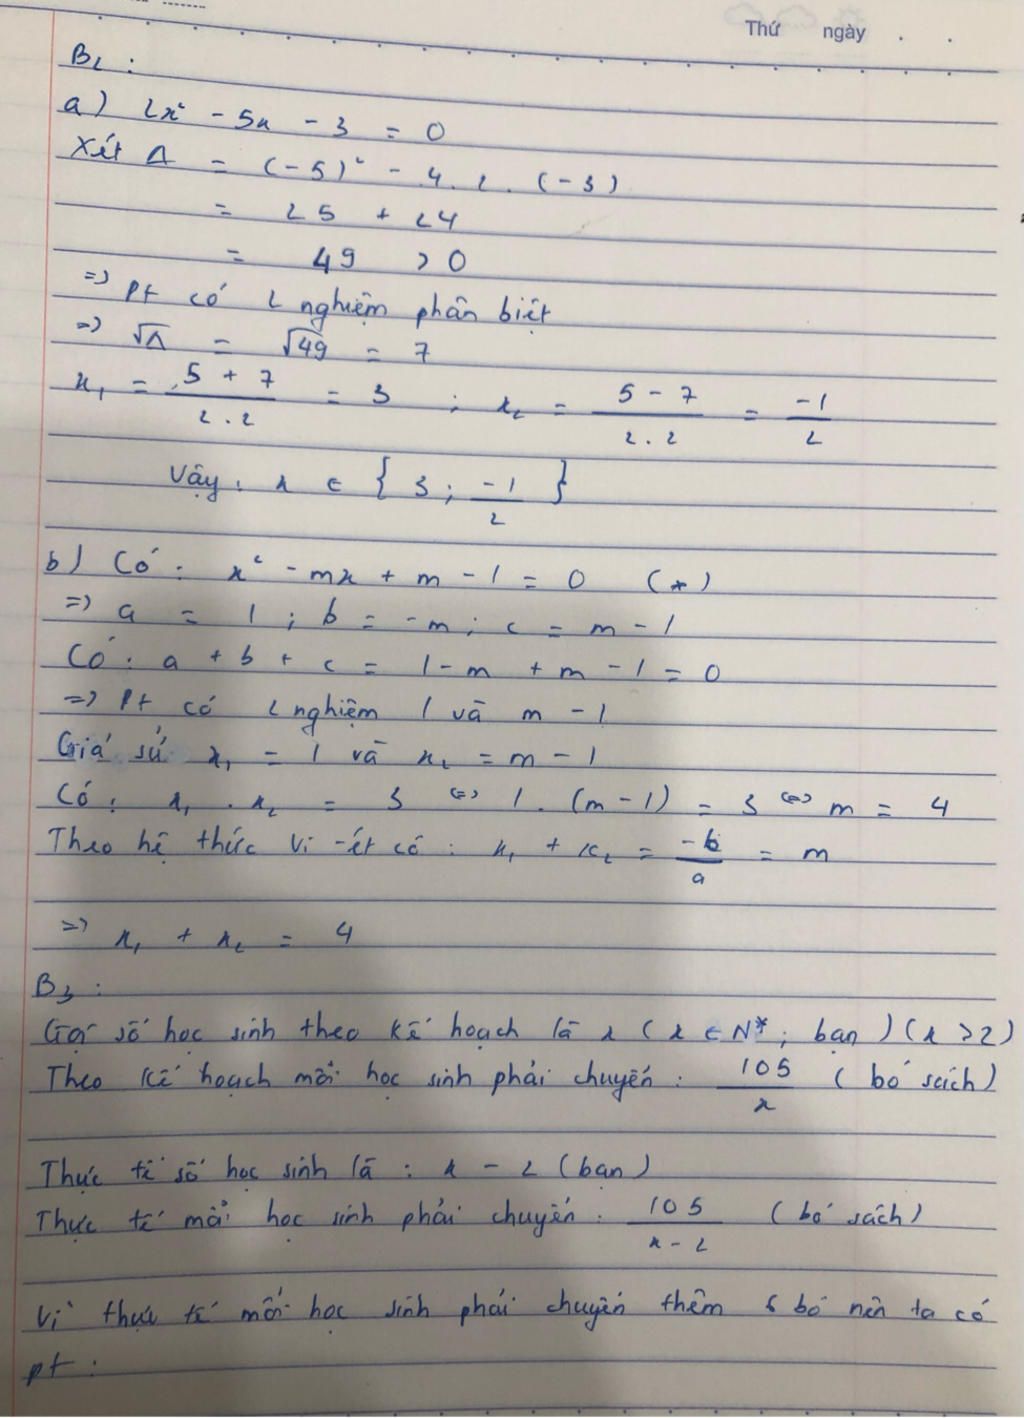 Thứ ngày . .
B2 :
a) 2x² - 5x - 3 = 0
Xét Δ = (-5)² - 4. 2. (-3)
= 25 + 24
= 49 > 0
=> Pt có 2 nghiệm phân biệt
=> √Δ = √49 = 7
x₁ = 5 + 7 / 2.2 = 3 ; x₂ = 5 - 7 / 2.2 = -1/2
Vậy: x ∈ { 3 ; -1/2 }
b) Có: x² - mx + m - 1 = 0 (*)
=> a = 1 ; b = -m ; c = m - 1
Có: a + b + c = 1 - m + m - 1 = 0
=> Pt có 2 nghiệm 1 và m - 1
Giả sử x₁ = 1 và x₂ = m - 1
Có: x₁ . x₂ = 3 <=> 1. (m - 1) = 3 <=> m = 4
Theo hệ thức Vi-ét có: x₁ + x₂ = -b/a = m
=> x₁ + x₂ = 4
B3 :
Gọi số học sinh theo kế hoạch là x (x ∈ N* ; bạn) (x > 2)
Theo kế hoạch mỗi học sinh phải chuyển: 105/x (bó sách)
Thực tế số học sinh là: x - 2 (bạn)
Thực tế mỗi học sinh phải chuyển: 105/x - 2 (bó sách)
Vì thực tế mỗi học sinh phải chuyển thêm 6 bó nên ta có
pt :